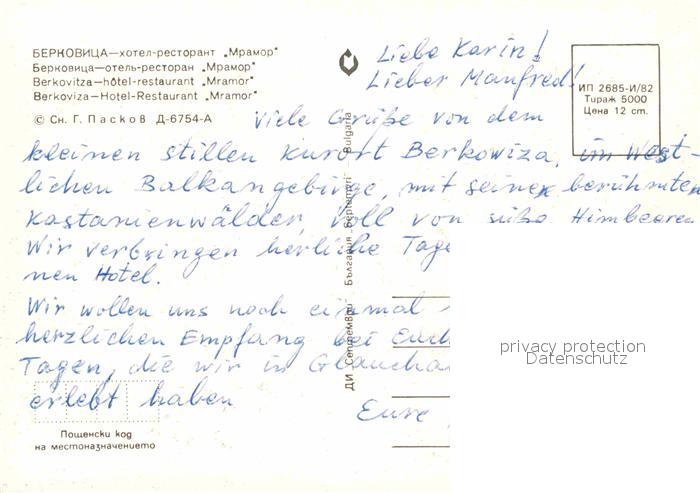 БЕРКОВИЦА—хотел-ресторант „Мрамор“
Берковица—отель-ресторан „Мрамор“
Berkovitza—hôtel-restaurant „Mramor“
Berkoviza—Hotel-Restaurant „Mramor“
© Сн. Г. Пасков Д-6754-А
ИП 2685-И/82
Тираж 5000
Цена 12 ст.
Liebe Karin!
Lieber Manfred!
Viele Grüße von dem
kleinen stillen Kurort Berkowiza, im West-
lichen Balkangebirge, mit seinen berühmten
Kastanienwälder, voll von süße Himbeeren
Wir verbringen herliche Tage
nen Hotel.
Wir wollen uns noch einmal
herzlichen Empfang bei Euch
Tagen, die wir in Glaucha
erlebt haben
Eure
ДИ „Септември“ България Bulgarien Bulgaria
Пощенски код
на местоназначението
privacy protection
Datenschutz